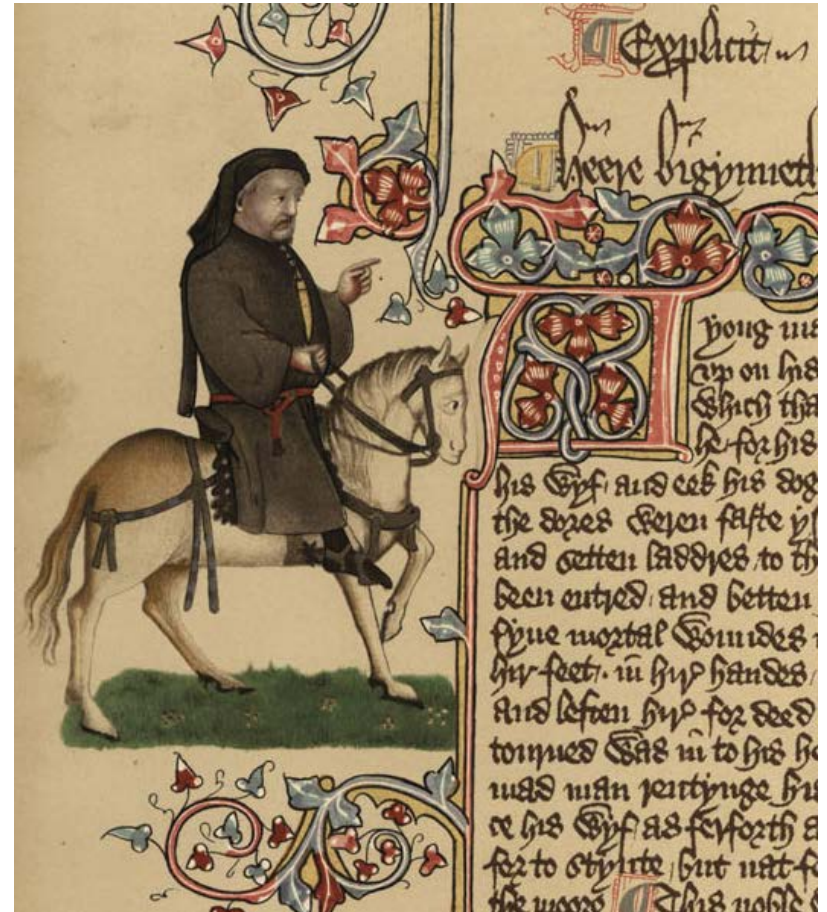 Explicit
Heere bigynneth
A yong ma
vp on his
which tha
he for his
his wyf / and eek his dog
the dores weren faste y
and setten laddres / to th
been entred / and betten
fyue mortal woundes
hir feet / in hir handes /
and leften hir for deed
tourned was in to his
mad man rentynge his
his wyf / as ferforth
for to stynte / but nat
the moore This noble